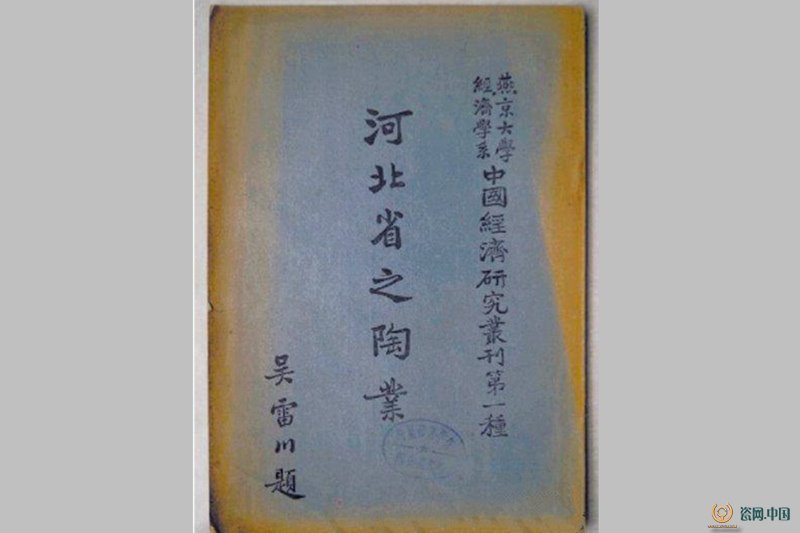 燕京大學
經濟學系
中國經濟研究叢刊第一種
河北省之陶業
吴雷川題
瓷网.中国